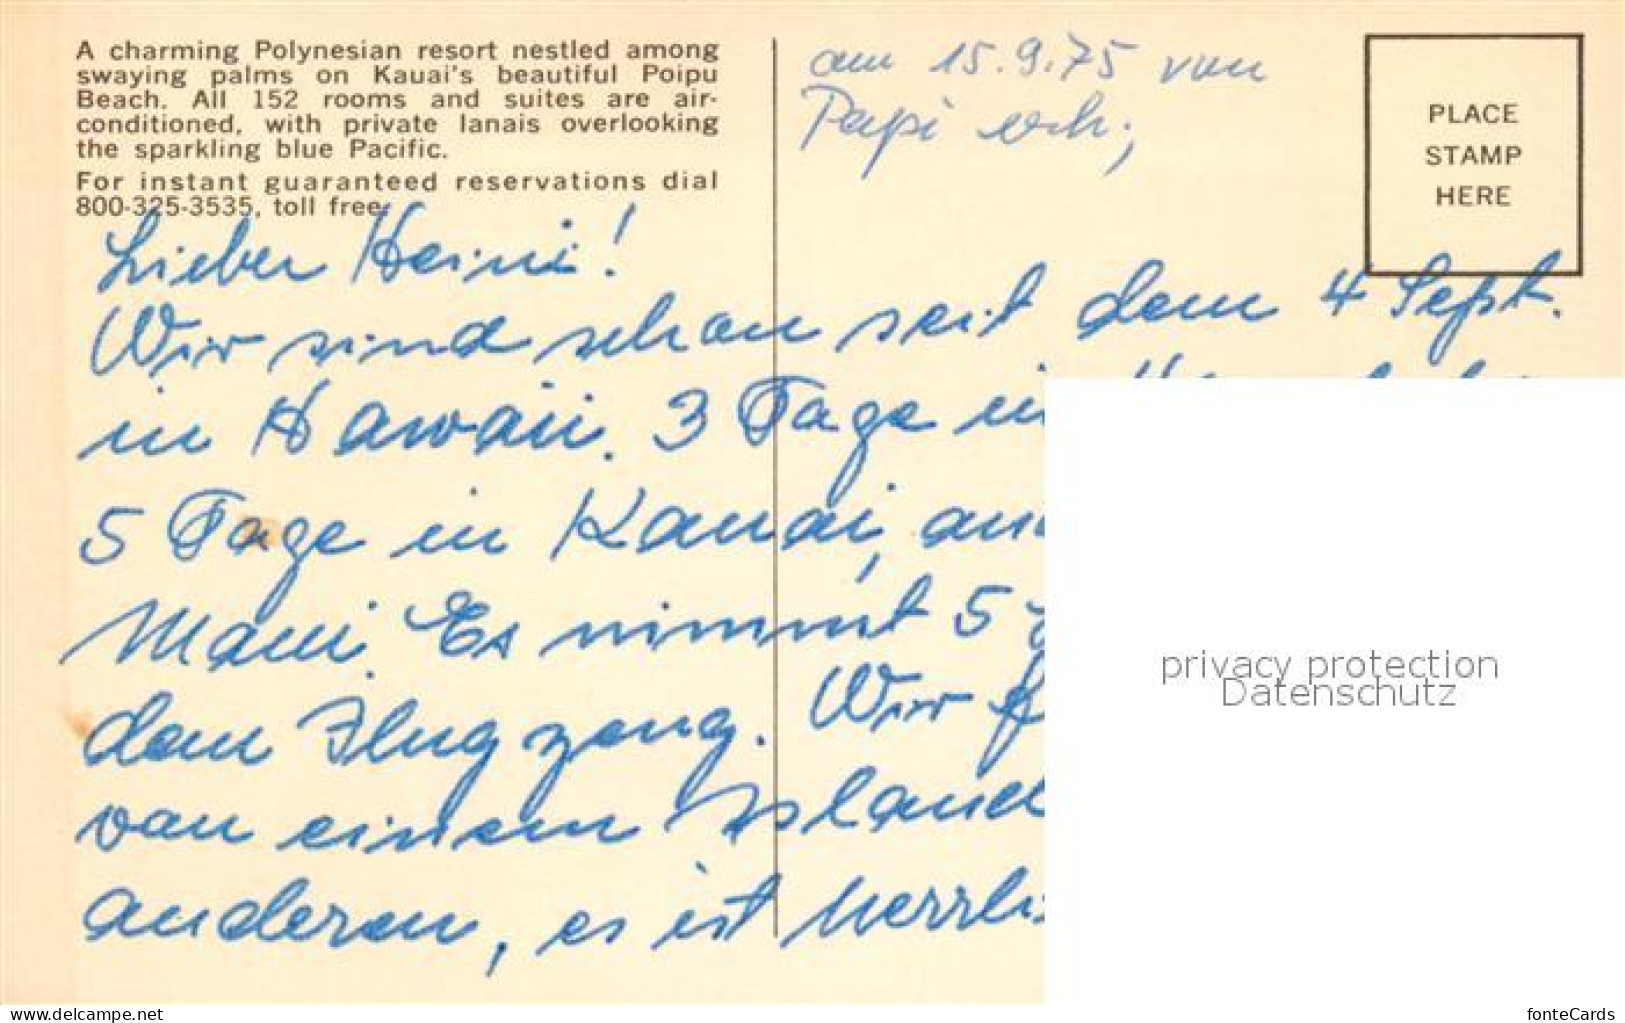 A charming Polynesian resort nestled among
swaying palms on Kauai's beautiful Poipu
Beach. All 152 rooms and suites are air-
conditioned, with private lanais overlooking
the sparkling blue Pacific.
For instant guaranteed reservations dial
800-325-3535, toll free.
am 15.9.75 von
Papi erh;
PLACE
STAMP
HERE
Lieber Heini!
Wir sind schon seit dem 4 Sept.
in Hawaii. 3 Tage in
5 Tage in Kauai,
Maui. Es nimmt 5
dem Flugzeug. Wir
von einem
anderen, es ist
privacy protection
Datenschutz
www.delcampe.net
fonteCards